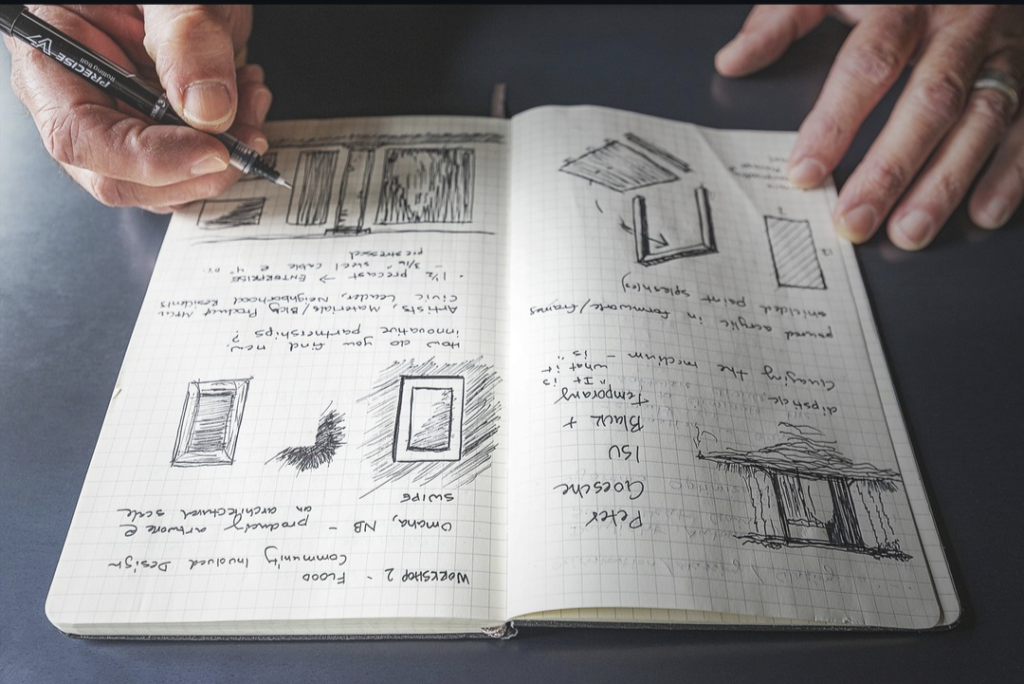 PRECISE V7
Rolling ball
WORKSHOP 2 - FLOOD
Community Involved Design
Omaha, NB - producing artwork @
an architectural scale
SWIPE
How do you find new
innovative partnerships?
Artists, Materials/Bldg Product Mfctr
Civic Leader, Neighborhood Residents
• 1 1/2 precast → ENTERPRISE
- 3/16" steel cable @ 4" oc.
prestressed
Peter
Goesche
ISU
Black +
Temporary
"It is
what it
is"
dipstick
Changing the medium -
poured acrylic in formwork/frames
shielded paint splash(s)